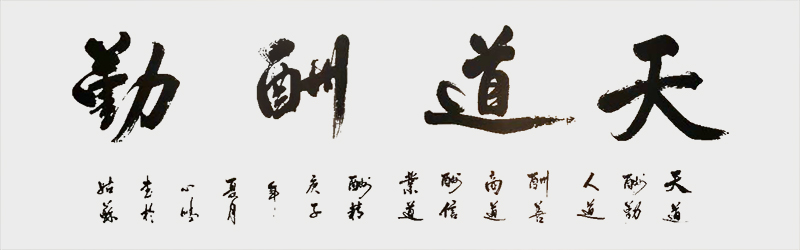 天道酬勤
天道
酬勤
人道
酬善
商道
酬信
業道
酬精
庚子
年
夏月
心
书於
姑蘇